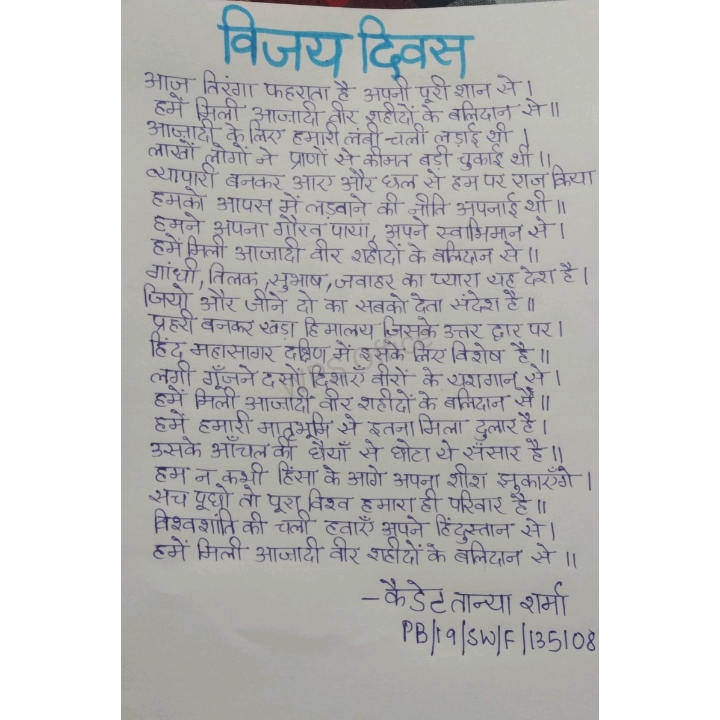 विजय दिवस
आज तिरंगा फहराता है अपनी पूरी शान से।
हमें मिली आज़ादी वीर शहीदों के बलिदान से॥
आज़ादी के लिए हमारी लंबी चली लड़ाई थी।
लाखों लोगों ने प्राणों से कीमत बड़ी चुकाई थी॥
व्यापारी बनकर आए और छल से हम पर राज किया
हमको आपस में लड़वाने की नीति अपनाई थी॥
हमने अपना गौरव पाया, अपने स्वाभिमान से।
हमें मिली आज़ादी वीर शहीदों के बलिदान से॥
गांधी, तिलक, सुभाष, जवाहर का प्यारा यह देश है।
जियो और जीने दो का सबको देता संदेश है॥
प्रहरी बनकर खड़ा हिमालय जिसके उत्तर द्वार पर।
हिंद महासागर दक्षिण में इसके लिए विशेष है॥
लगी गूँजने दसों दिशाएँ वीरों के यशगान से।
हमें मिली आज़ादी वीर शहीदों के बलिदान से॥
हमें हमारी मातृभूमि से इतना मिला दुलार है।
उसके आँचल की छैयाँ से छोटा ये संसार है॥
हम न कभी हिंसा के आगे अपना शीश झुकाएँगे।
सच पूछो तो पूरा विश्व हमारा ही परिवार है॥
विश्वशांति की चली हवाएँ अपने हिंदुस्तान से।
हमें मिली आज़ादी वीर शहीदों के बलिदान से॥
-कैडेट तान्या शर्मा
PB/19/SW/F/135108